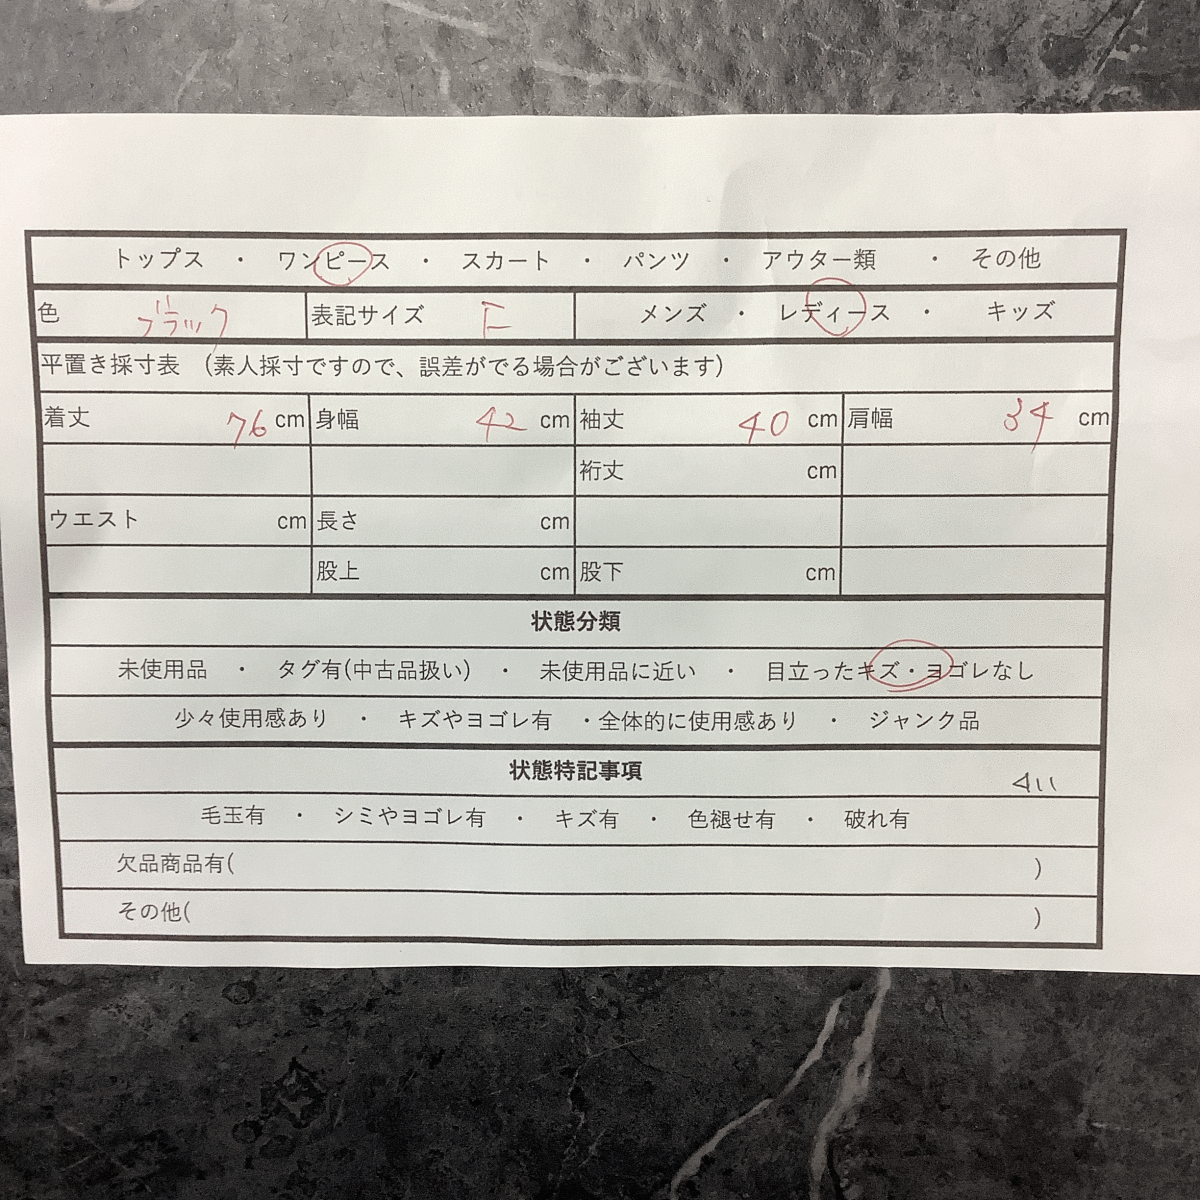 トップス ・ ワンピース ・ スカート ・ パンツ ・ アウター類 ・ その他
色 ブラック 表記サイズ F メンズ ・ レディース ・ キッズ
平置き採寸表 (素人採寸ですので、誤差がでる場合がございます)
着丈 76 cm 身幅 42 cm 袖丈 40 cm 肩幅 34 cm
裄丈 cm
ウエスト cm 長さ cm
股上 cm 股下 cm
状態分類
未使用品 ・ タグ有(中古品扱い) ・ 未使用品に近い ・ 目立ったキズ・ヨゴレなし
少々使用感あり ・ キズやヨゴレ有 ・全体的に使用感あり ・ ジャンク品
状態特記事項
毛玉有 ・ シミやヨゴレ有 ・ キズ有 ・ 色褪せ有 ・ 破れ有
欠品商品有( )
その他( )